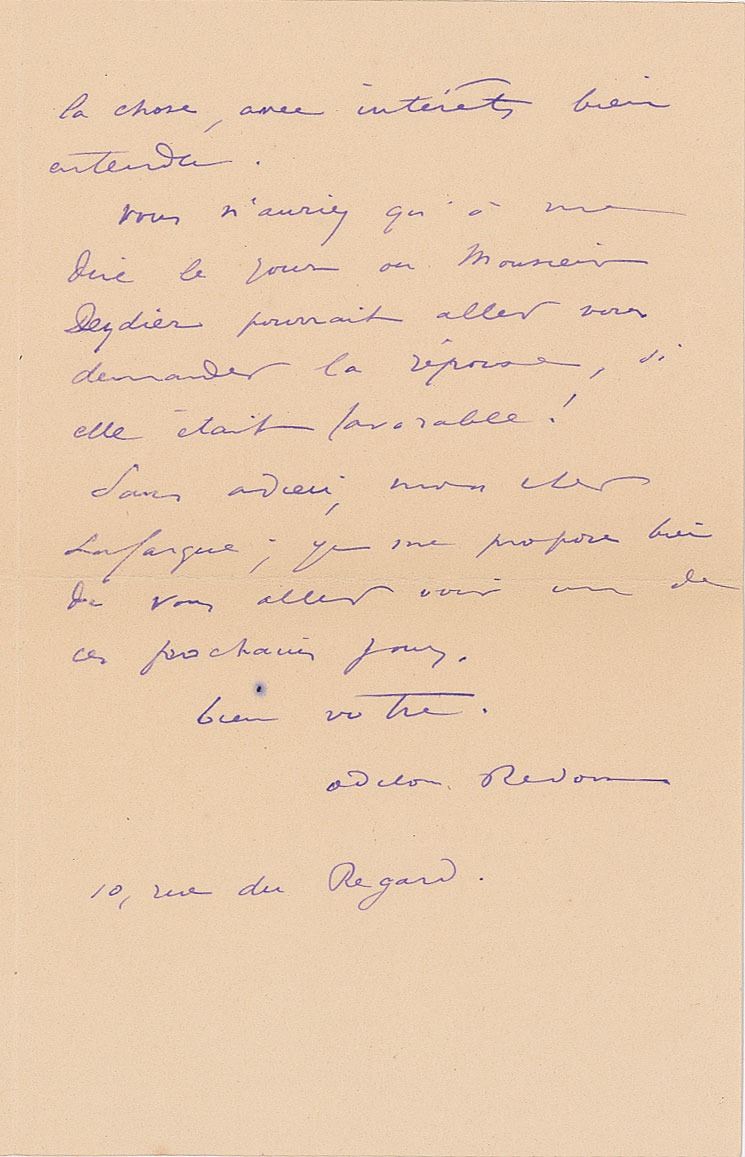 la chose, avec intérêts bien
entendu.
Vous n'auriez qu'à me
dire le jour ou Monsieur
Deydier pourrait aller vous
demander la réponse, si
elle était favorable !
Sans adieu, mon cher
Lafargue ; je me propose bien
de vous aller voir un de
ces prochains jours.
bien votre.
odilon Redon
10, rue du Regard.